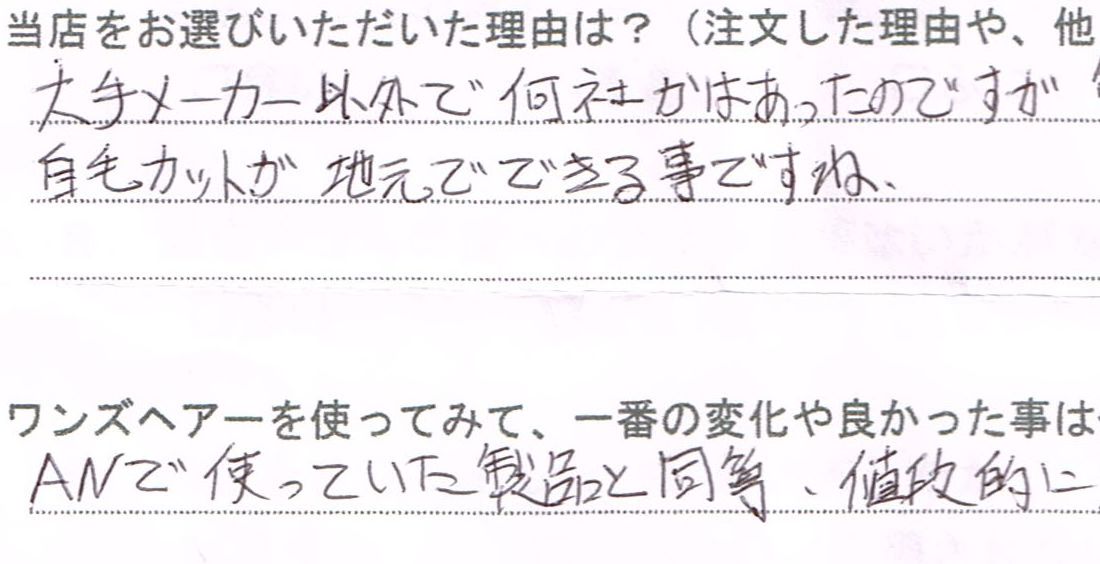 当店をお選びいただいた理由は？（注文した理由や、他
大手メーカー以外で何社かはあったのですが
自毛カットが地元でできる事ですね、
ワンズヘアーを使ってみて、一番の変化や良かった事は
ANで使っていた製品と同等、値段的に